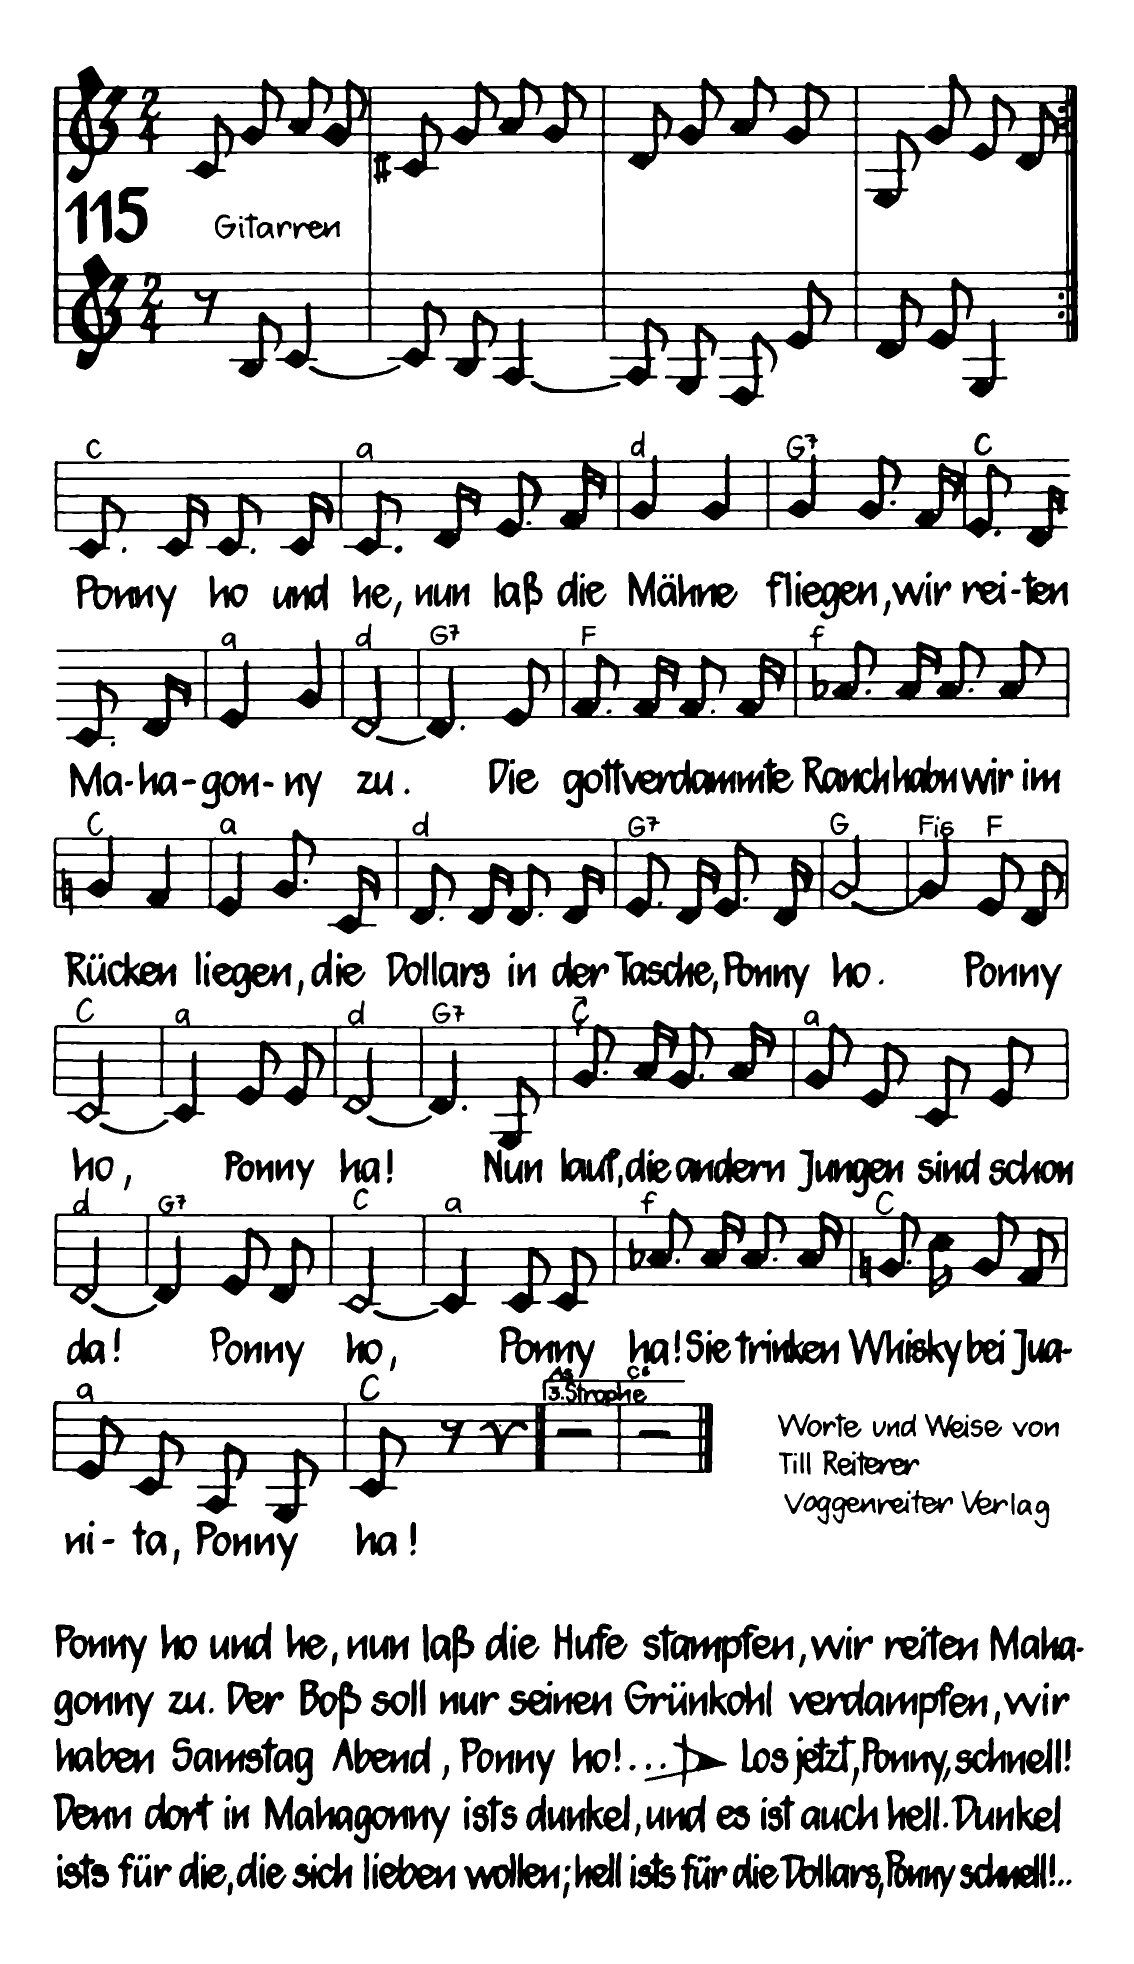 115 Gitarren
C a d G7 C
Ponny ho und he, nun laß die Mähne fliegen, wir rei-ten
a d G7 F f
Ma-ha-gon-ny zu. Die gottverdammte Ranch habn wir im
C a d G7 G Fis F
Rücken liegen, die Dollars in der Tasche, Ponny ho. Ponny
C a d G7 C a
ho, Ponny ha! Nun lauf, die andern Jungen sind schon
d G7 C a f C
da! Ponny ho, Ponny ha! Sie trinken Whisky bei Jua-
a C As C6
3. Strophe
ni-ta, Ponny ha!
Worte und Weise von
Till Reiterer
Voggenreiter Verlag
Ponny ho und he, nun laß die Hufe stampfen, wir reiten Maha-
gonny zu. Der Boß soll nur seinen Grünkohl verdampfen, wir
haben Samstag Abend, Ponny ho!... Los jetzt, Ponny, schnell!
Denn dort in Mahagonny ists dunkel, und es ist auch hell. Dunkel
ists für die, die sich lieben wollen; hell ists für die Dollars, Ponny schnell!..